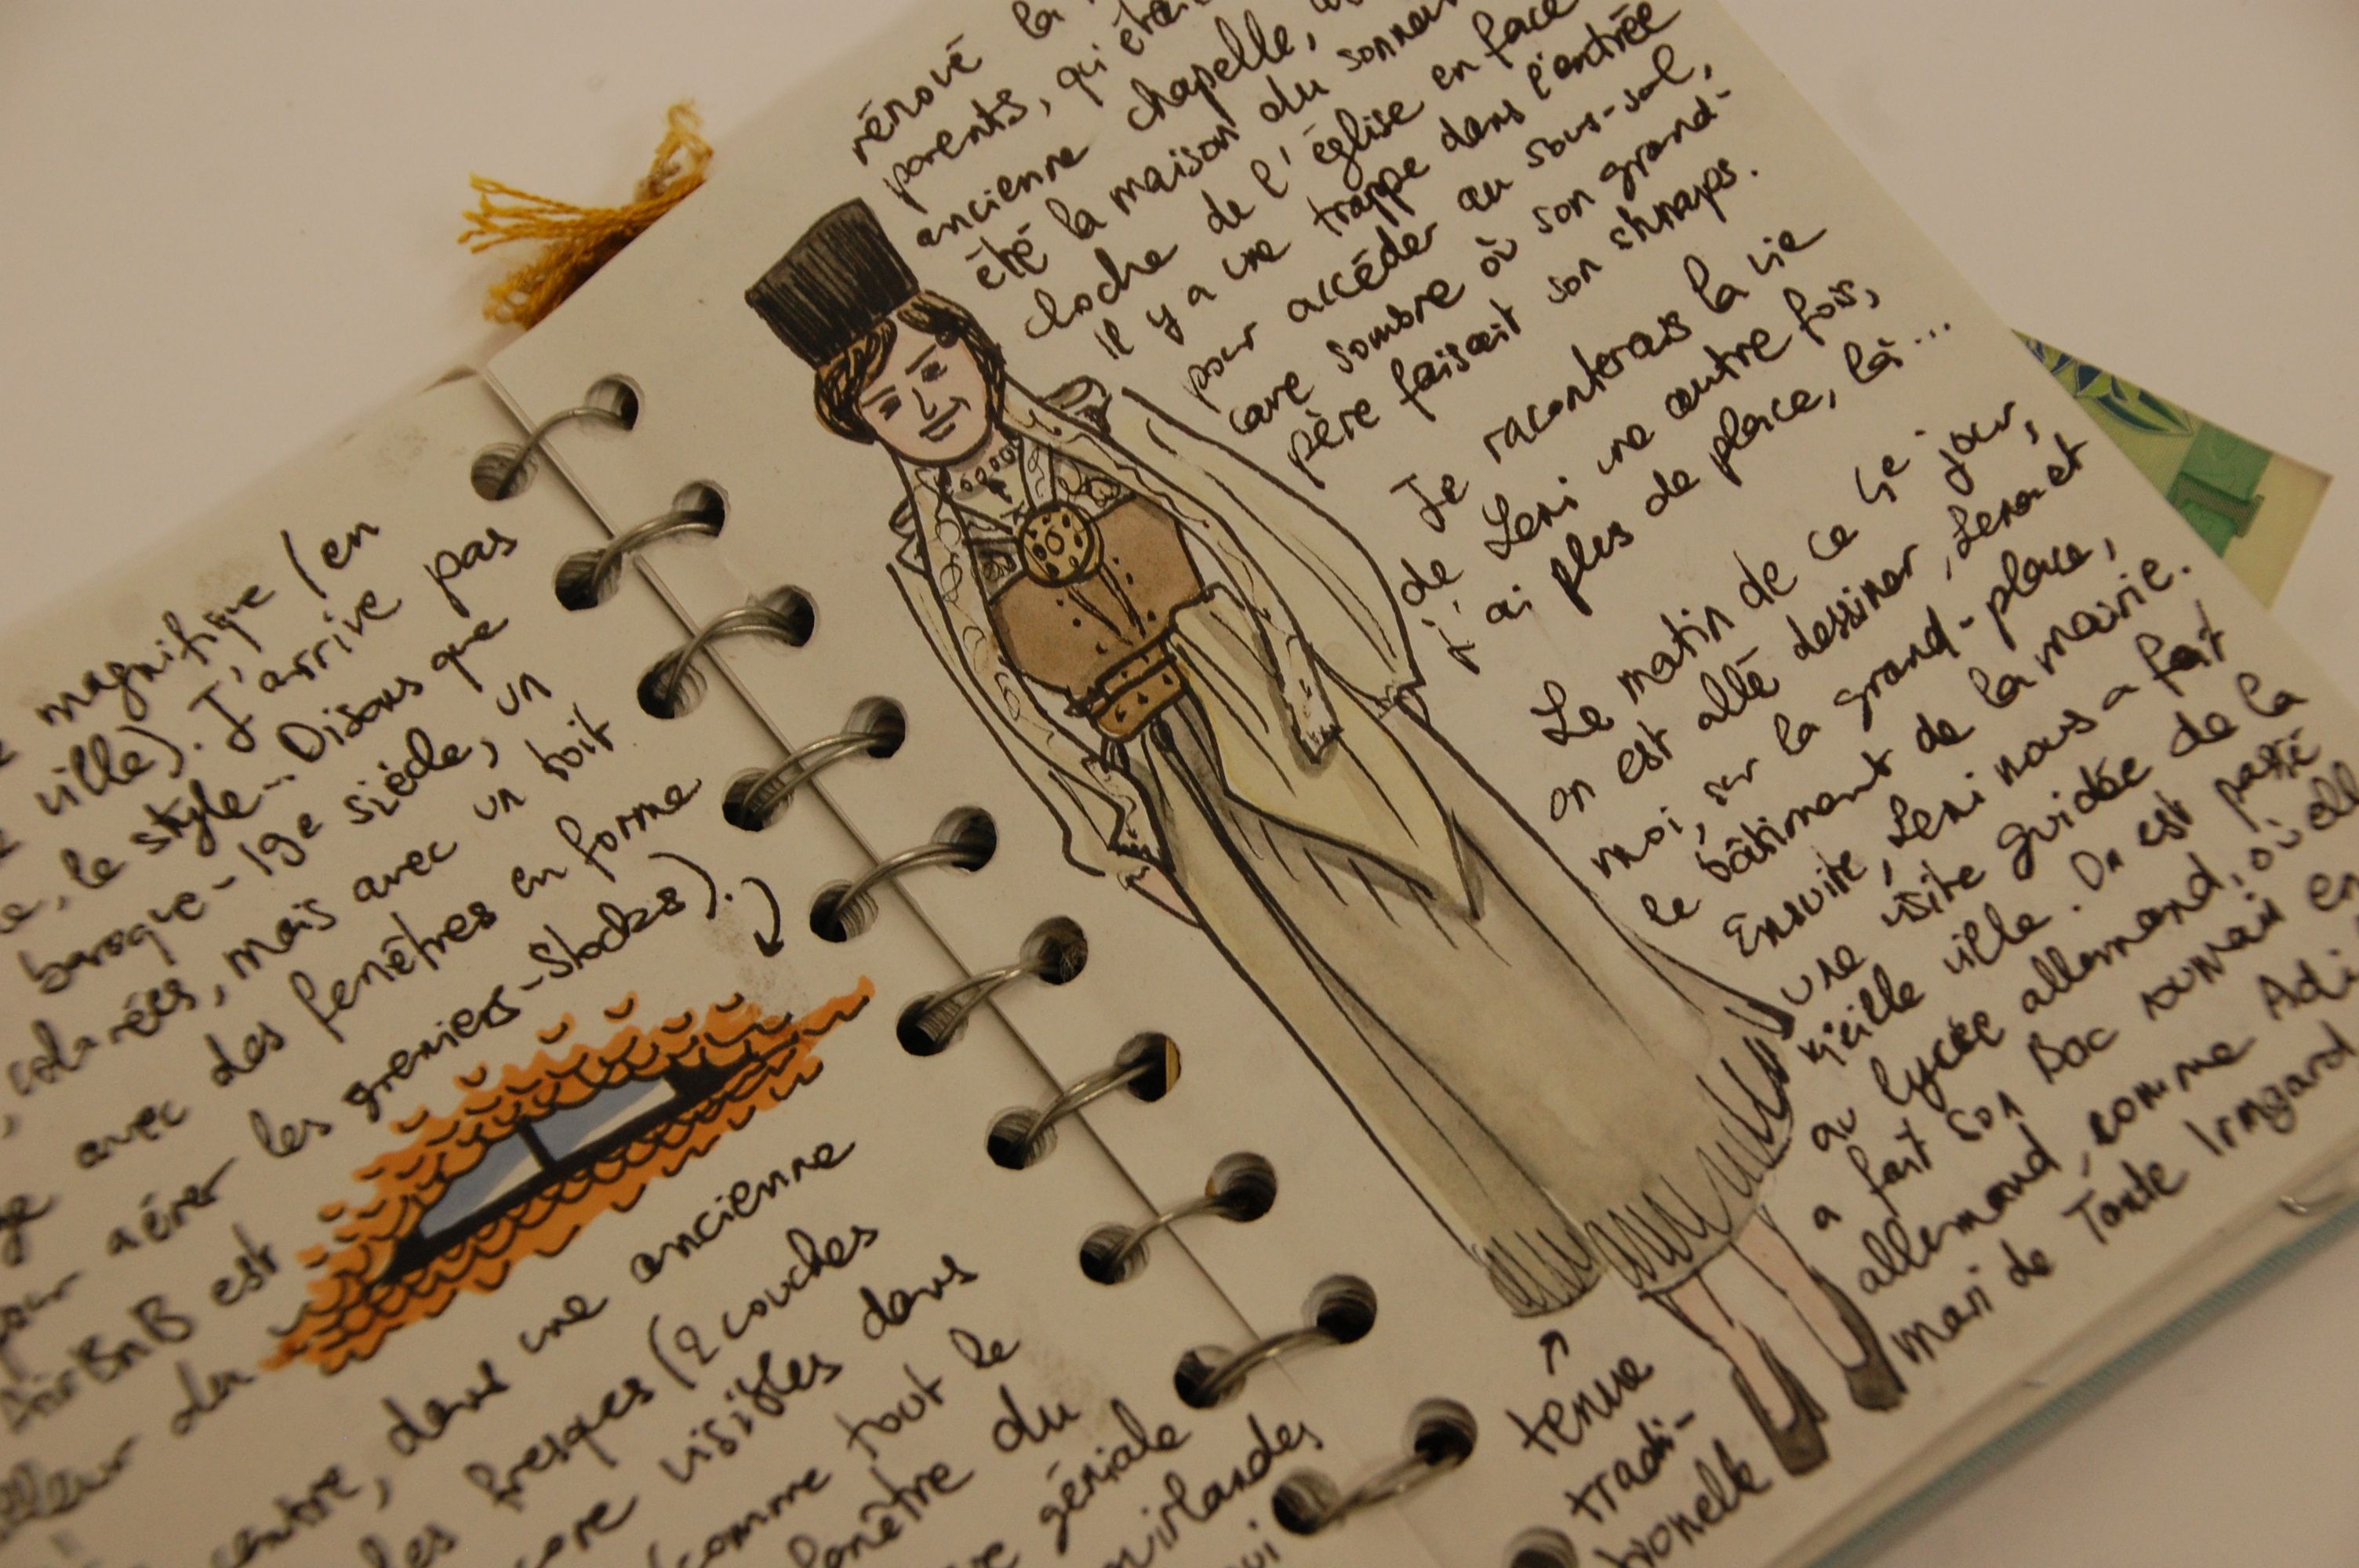 magnifique (en
ville). J'arrive pas
le style... Disons que
baroque - 19e siècle, un
colorées, mais avec un toit
avec des fenêtres en forme
pour aérer les greniers-stocks).
AirBnB est
du
centre, dans une ancienne
les fresques (2 couches
visibles dans
comme tout le
fenêtre du
géniale
rénové la
parents, qui
ancienne chapelle,
été la maison du
cloche de l'église en face
Il y a une trappe dans l'entrée
pour accéder au sous-sol,
cave sombre où son grand-
père faisait son shnaps.
Je raconterais la vie
de Leni une autre fois,
j'ai plus de place, là...
Le matin de ce 4e jour,
on est allé dessiner, Lena et
moi, sur la grand-place,
le bâtiment de la mairie.
Ensuite, Leni nous a fait
une visite guidée de la
vieille ville. On est passé
au lycée allemand, où
a fait son Bac roumain
allemand, comme Adi
mari de Tante Irmgard
tenue
tradi-
tionnelle